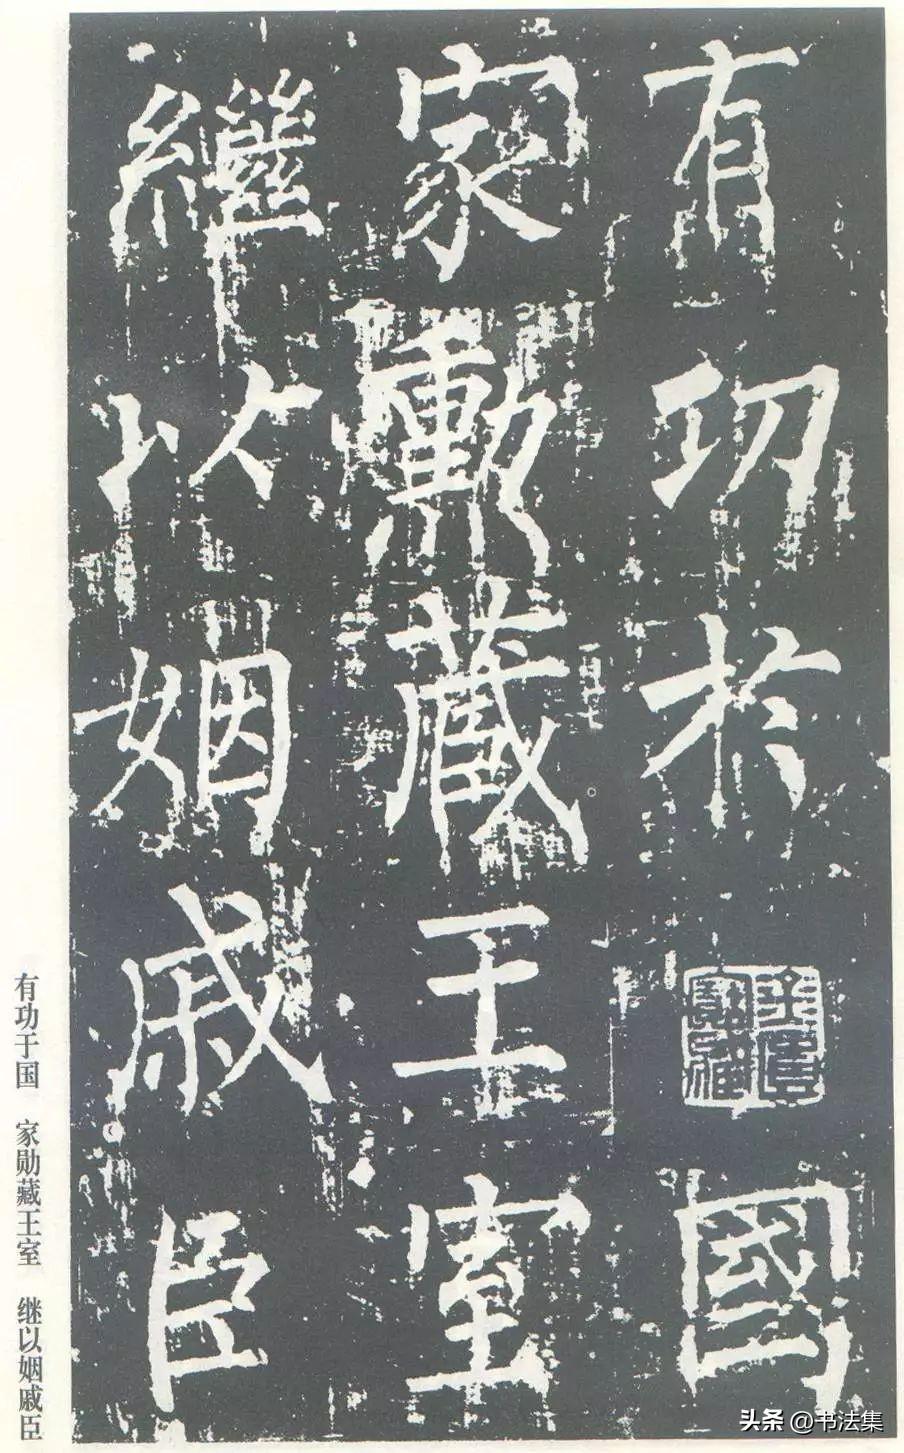 有功於國
家勲藏王室
繼以姻戚臣
有功于国　家勋藏王室　继以姻戚臣
头条 @书法集